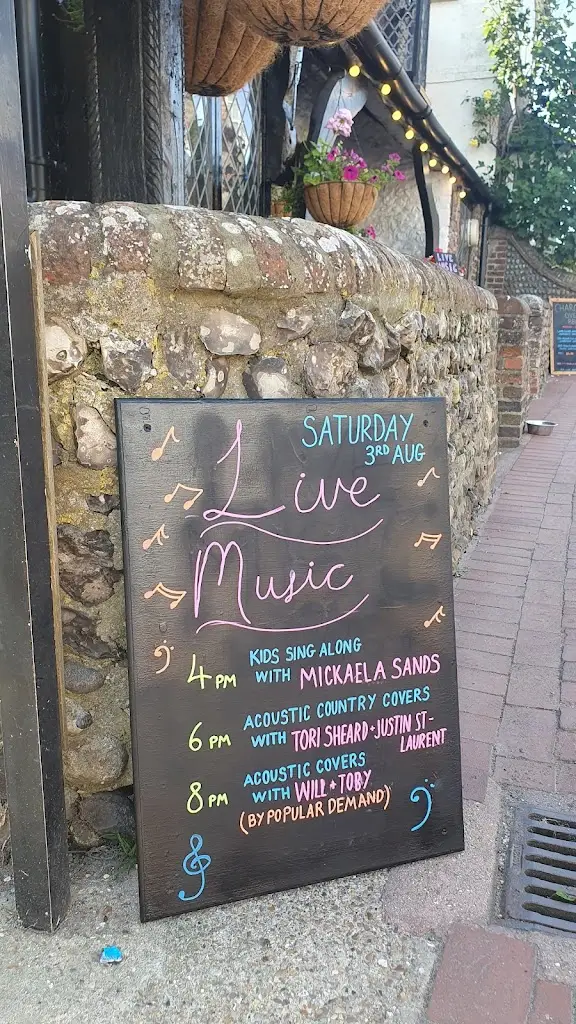 SATURDAY
3RD AUG
Live
Music
4PM KIDS SING ALONG
WITH MICKAELA SANDS
6PM ACOUSTIC COUNTRY COVERS
WITH TORI SHEARD + JUSTIN ST-
LAURENT
8PM ACOUSTIC COVERS
WITH WILL + TOBY
(BY POPULAR DEMAND)
LIVE
MUSIC